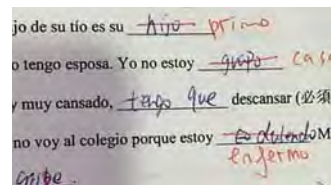 jo de su tío es su hijo primo
o tengo esposa. Yo no estoy guapo casa
y muy cansado, tengo que descansar (必须
no voy al colegio porque estoy M
enfermo
gripe.